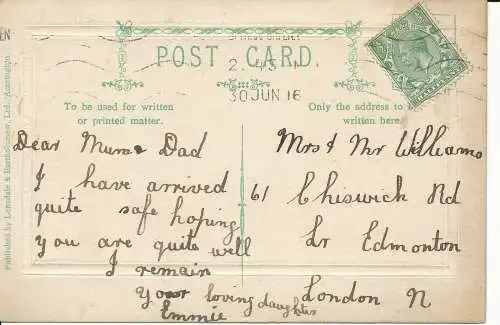 POST CARD.
30 JUN 16
To be used for written
or printed matter.
Only the address to
written here
Dear Mum & Dad
I have arrived
quite safe hoping
you are quite well
I remain
Your loving daughter
Emmie
Mrs & Mr Williams
61 Chiswick Rd
Lr Edmonton
London N
Published by Lonsdale & Bartholomew, Ltd., Accrington.